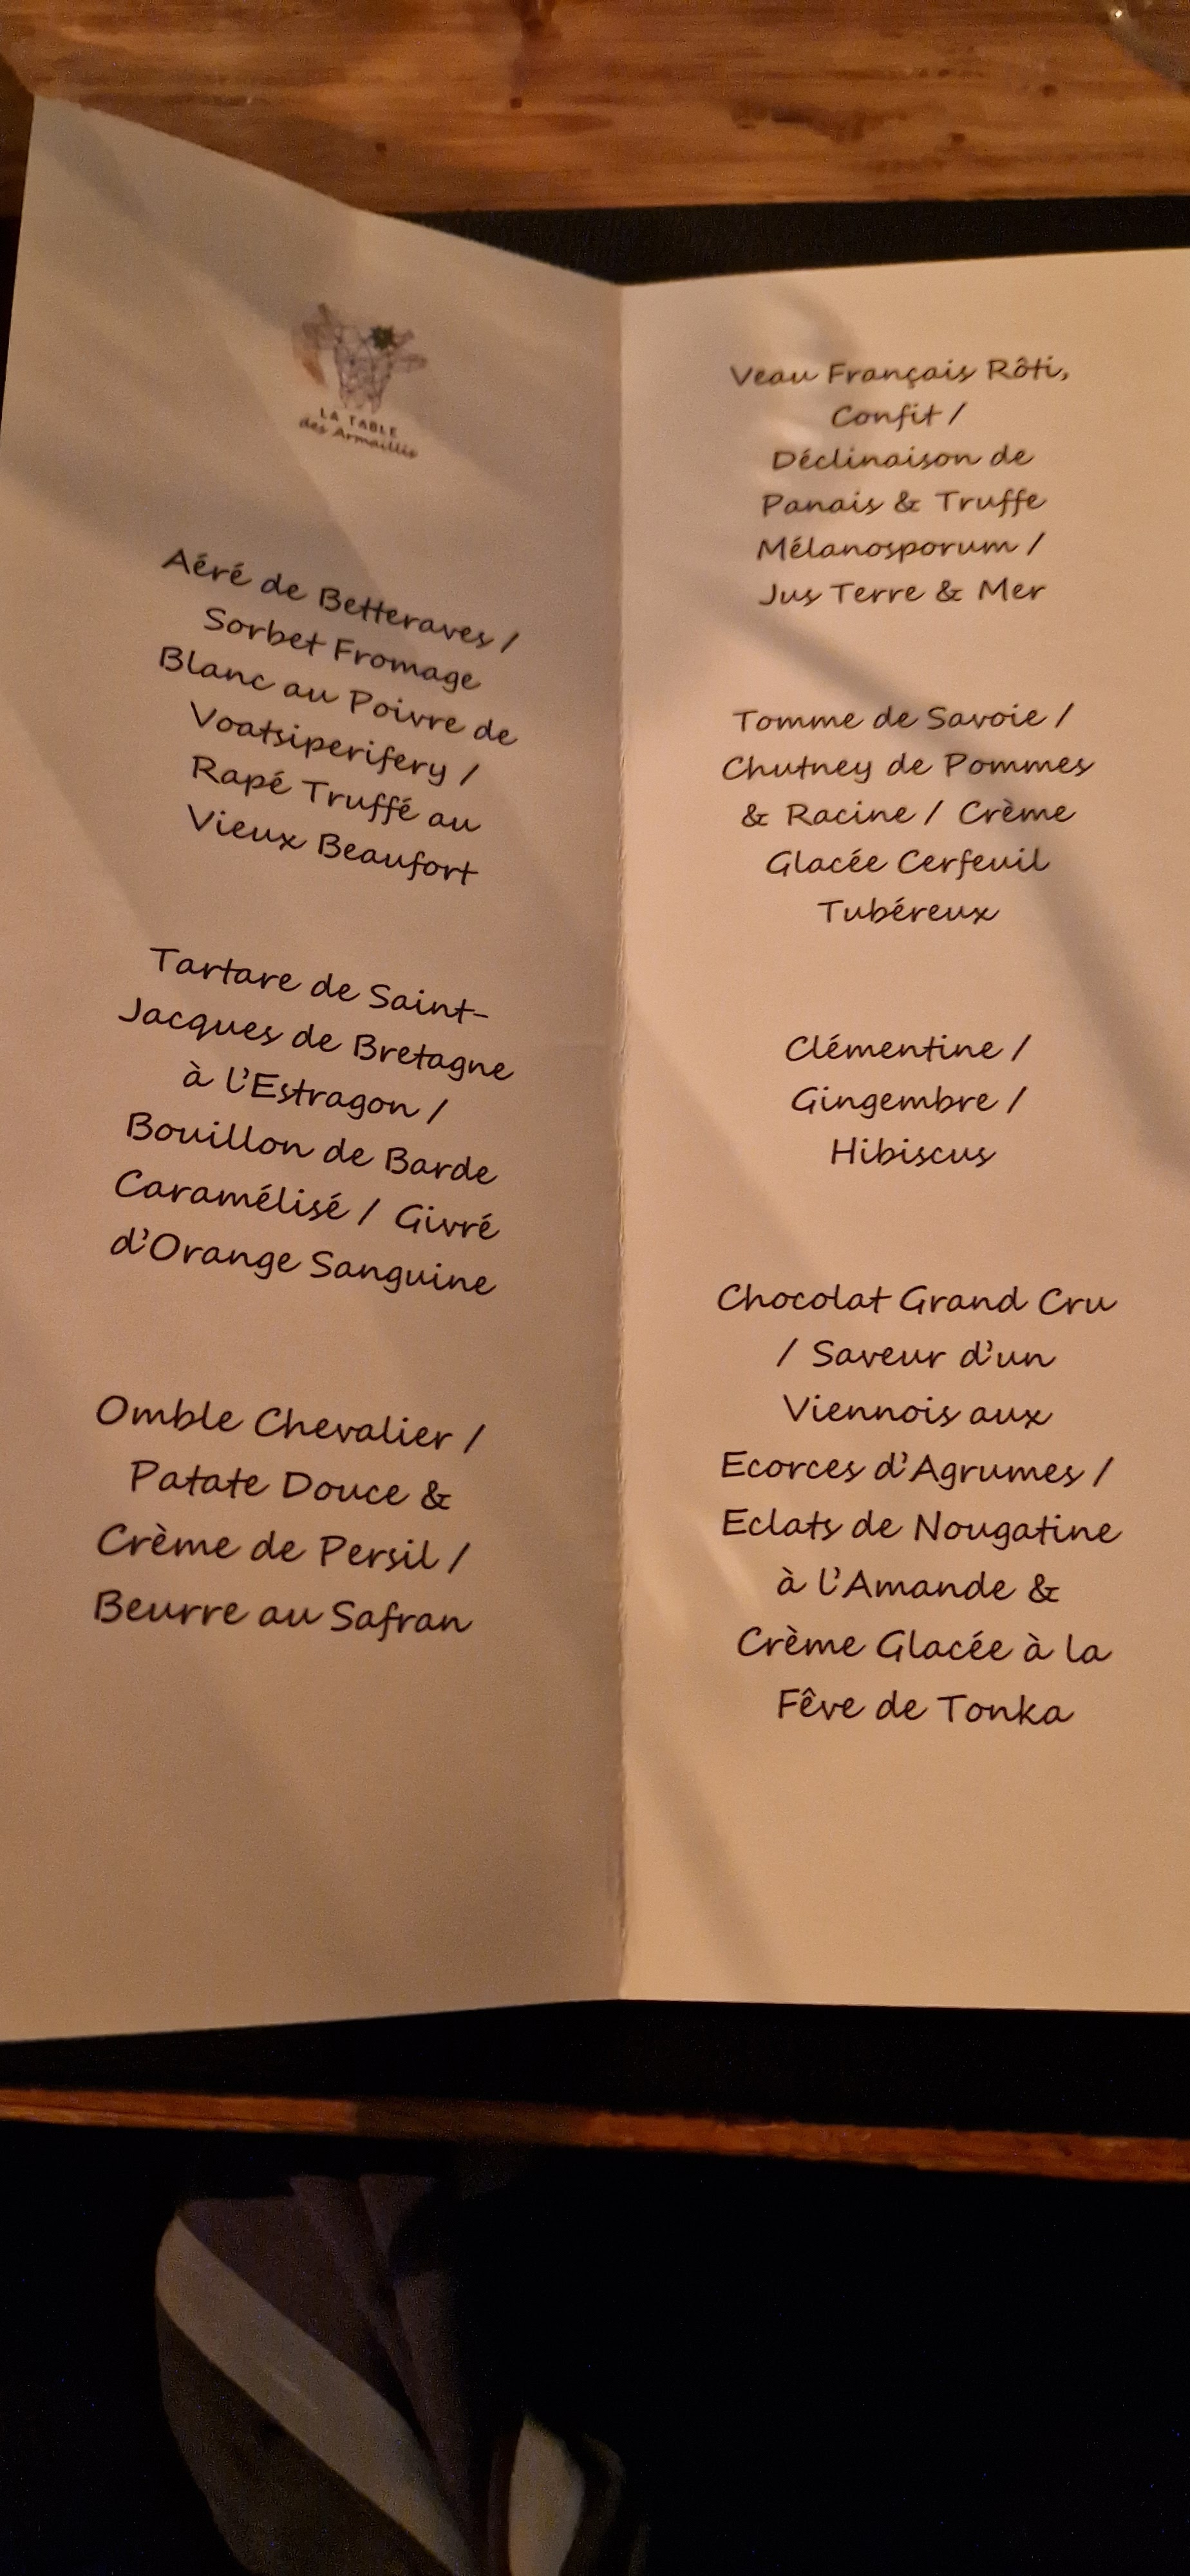 LA TABLE
des Armaillis
Aéré de Betteraves /
Sorbet Fromage
Blanc au Poivre de
Voatsiperifery /
Rapé Truffé au
Vieux Beaufort
Tartare de Saint-
Jacques de Bretagne
à l'Estragon /
Bouillon de Barde
Caramélisé / Givré
d'Orange Sanguine
Omble Chevalier /
Patate Douce &
Crème de Persil /
Beurre au Safran
Veau Français Rôti,
Confit /
Déclinaison de
Panais & Truffe
Mélanosporum /
Jus Terre & Mer
Tomme de Savoie /
Chutney de Pommes
& Racine / Crème
Glacée Cerfeuil
Tubéreux
Clémentine /
Gingembre /
Hibiscus
Chocolat Grand Cru
/ Saveur d'un
Viennois aux
Ecorces d'Agrumes /
Eclats de Nougatine
à l'Amande &
Crème Glacée à la
Fêve de Tonka